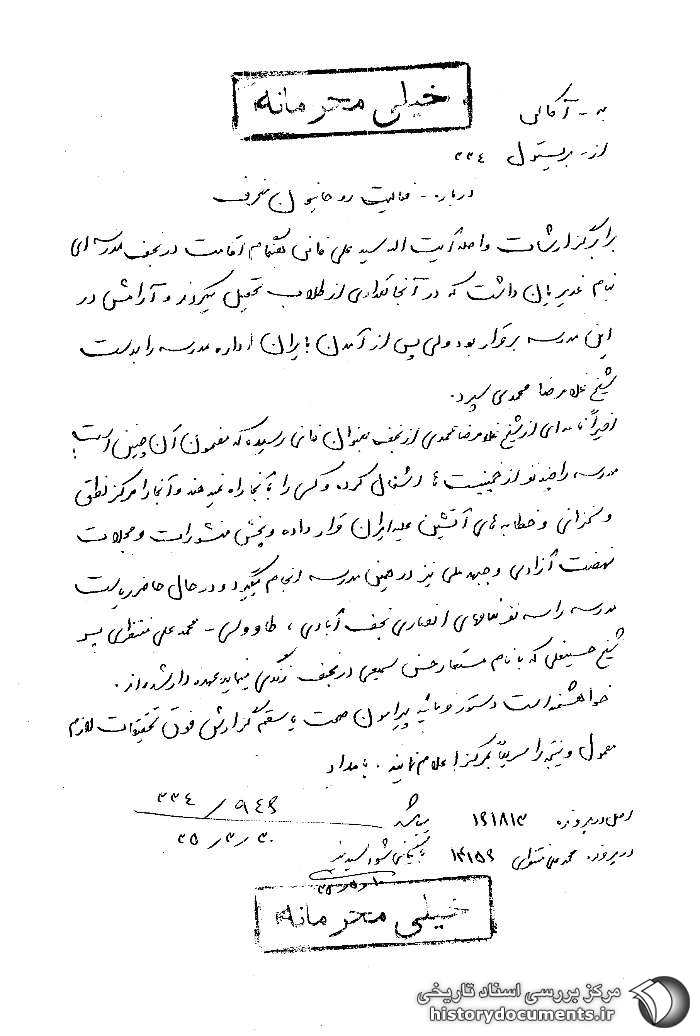 خیلی محرمانه
به - آکالی
از - پریستول ۳۳۴
درباره - فعالیت روحانیون منحرف
برابر گزارشات واصله آیت اله سید علی فانی هنگام اقامت در نجف مدرسه ای
بنام غدیریان داشت که در آنجا تعدادی از طلاب تحصیل میکردند و آرامش در
این مدرسه برقرار بود ولی پس از آمدن بایران اداره مدرسه را بدست
شیخ غلامرضا محمدی سپرد.
اخیراً نامه ای از شیخ غلامرضا محمدی از نجف بعنوان فانی رسیده که مضمون آن چنین است؛
مدرسه را چند نفر از خمینیست ها اشغال کرده و کسی را بآنجا راه نمیدهند و آنجا را مرکز نطق
و سخنرانی و خطابه های آتشین علیه ایران قرار داده و پخش منشورات و مجلات
نهضت آزادی و جبهه ملی نیز در همین مدرسه انجام میگیرد و در حال حاضر ریاست
مدرسه را سه نفر بنامهای انصاری نجف آبادی ، طاووسی - محمد علی منتظری پسر
شیخ حسینعلی که با نام مستعار حسن سمیعی در نجف زندگی مینماید بعهده دار شده اند.
خواهشمند است دستور فرمائید پیرامون صحت یا سقم گزارش فوق تحقیقات لازم
معمول و نتیجه را سریعاً بمرکز اعلام نمایند . بامداد
۳۳۴ / ۹۴۹
۳۵/۳/۳۰
اصل در پرونده ۱۲۱۸۱۳
در پرونده محمد علی منتظری بایگانی شود
خیلی محرمانه
مرکز بررسی اسناد تاریخی
historydocuments.ir